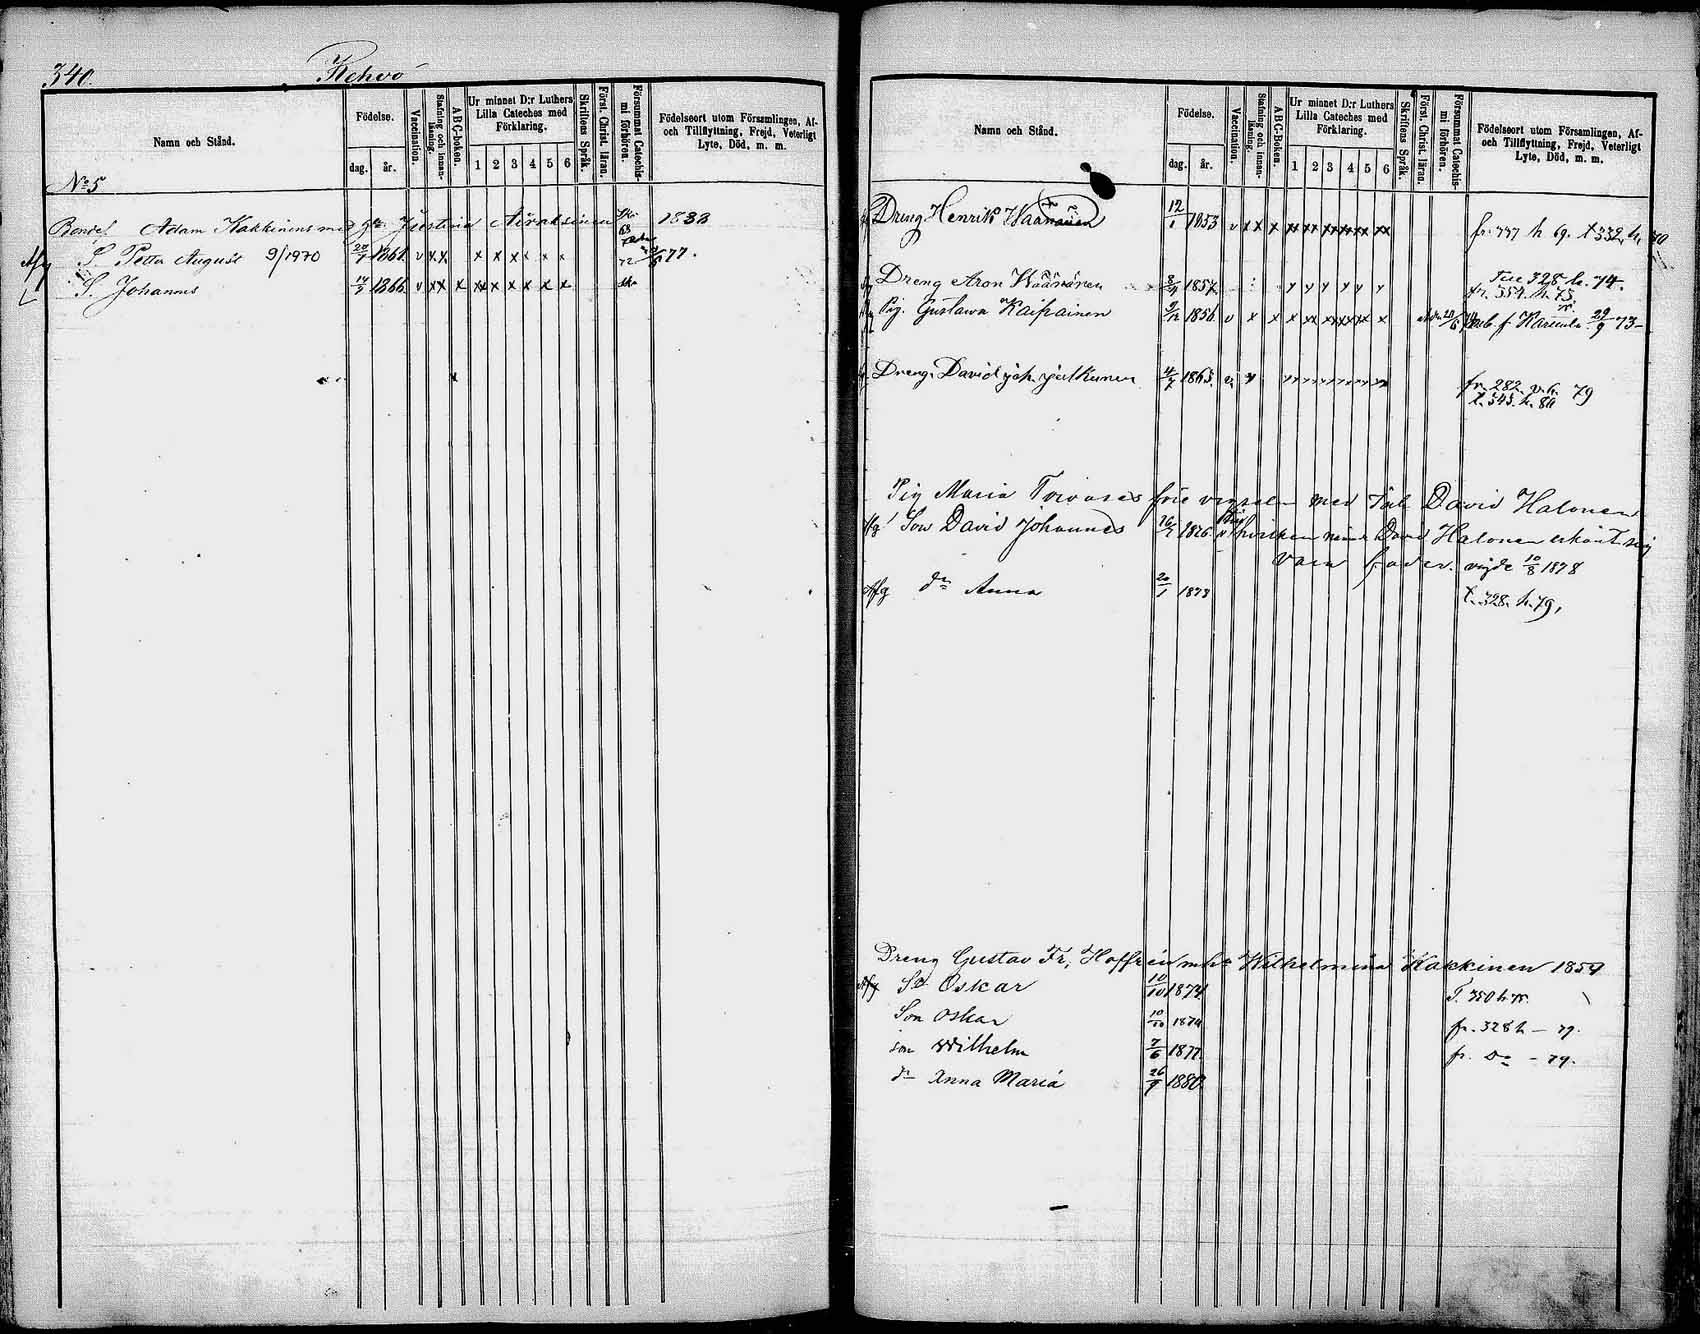 340. Kehvo
Namn och Stånd.
Födelse.
dag. år.
Vaccination.
Stafning och innanläsning.
ABC-boken.
Ur minnet D:r Luthers Lilla Cateches med Förklaring.
1 2 3 4 5 6
Skriftens Språk.
Först. Christ. läran.
Försummat Catechismi förhören.
Födelseort utom Församlingen, Af- och Tillflyttning, Frejd, Veterligt Lyte, Död, m. m.
No 5
Bonde Adam Kakkinens med Justina Airaksinen 1838
Afg S. Petter August 9/1970 1861 v x x x x x x x x 72 77.
S. Johannes 14/9 1866 v x x x x x x x x x x
Namn och Stånd.
Födelse.
dag. år.
Vaccination.
Stafning och innanläsning.
ABC-Boken.
Ur minnet D:r Luthers Lilla Cateches med Förklaring.
1 2 3 4 5 6
Skriftens Språk.
Först. Christ. läran.
Försummat Catechismi förhören.
Födelseort utom Församlingen, Af- och Tillflyttning, Frejd, Veterligt Lyte, Död, m. m.
Dreng Henrik Wäänänen 12/1 1853 v x x x fr. 337 h 69. t 332, h, 70
Dreng Aron Wäänänen 1857 Till 328 h. 74.
fr. 354. h. 75.
Pig. Gustava Kaipainen 9/12 1856 v x x x Karttula 29/9 73
Dreng. David Joh. Julkunen 4/7 1865. fr. 282. v. h. 79
t. 345. h. 80
Pig Maria Toivoses före vigseln med David Halonen
Afg Son David Johannes 16/7 1876. v hvilken David Halonen erkänt sig
vara fader. vigde 10/8 1878
Afg dr Anna 20/1 1873 t. 328. h. 79,
Dreng Gustav Fr. Hoffrén mhu Wilhelmina Kakkinen 1854
Afg Sn Oskar 10/10 1874 T. 350 h 75.
Son Oskar 10/10 1874 fr. 328 h - 79.
son Wilhelm 7/6 1877. fr. Do - 79.
dr Anna Maria 26/9 1880.